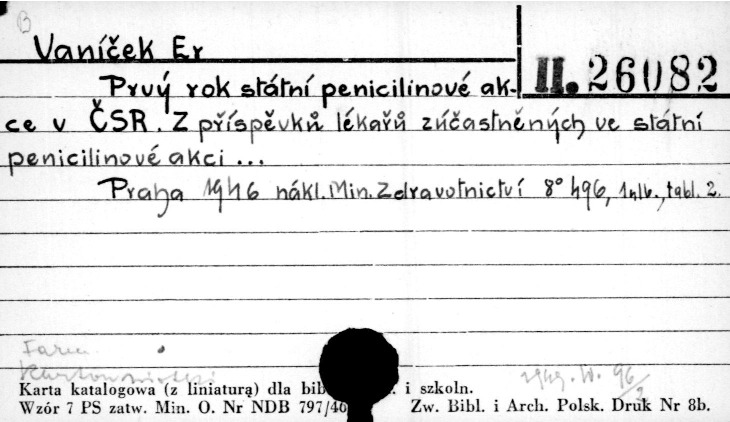 B
Vaníček Er
II. 26082
Prvý rok státní penicilinové ak-
ce v ČSR. Z příspěvků lékařů zúčastněných ve státní
penicilinové akci ...
Praha 1946 nákl. Min. Zdravotnictví 8° 496, 1 nlb., tabl. 2.
Farm.
1949. W. 96/2
Karta katalogowa (z liniaturą) dla bib i szkoln.
Wzór 7 PS zatw. Min. O. Nr NDB 797/46 Zw. Bibl. i Arch. Polsk. Druk Nr 8b.